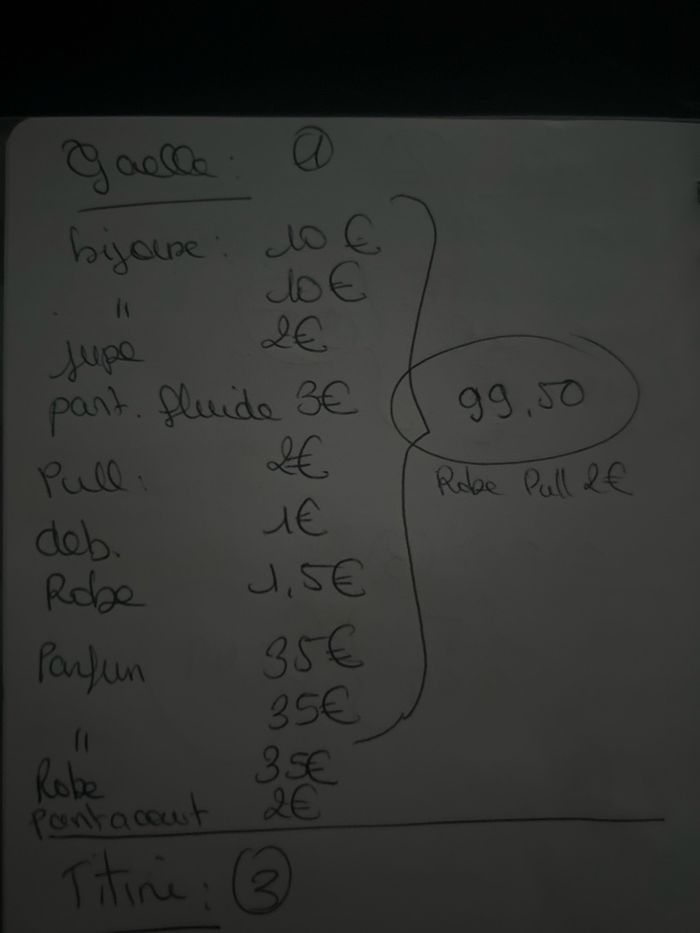 Gaelle : 1
bijoux : 10 €
" 10 €
jupe 2€
pant. fluide 3€
Pull : 2€
deb. 1€
Robe 1,5€
Parfun 35€
" 35€
Robe 35€
pantacourt 2€
99,50
Robe Pull 2€
Titine : 3